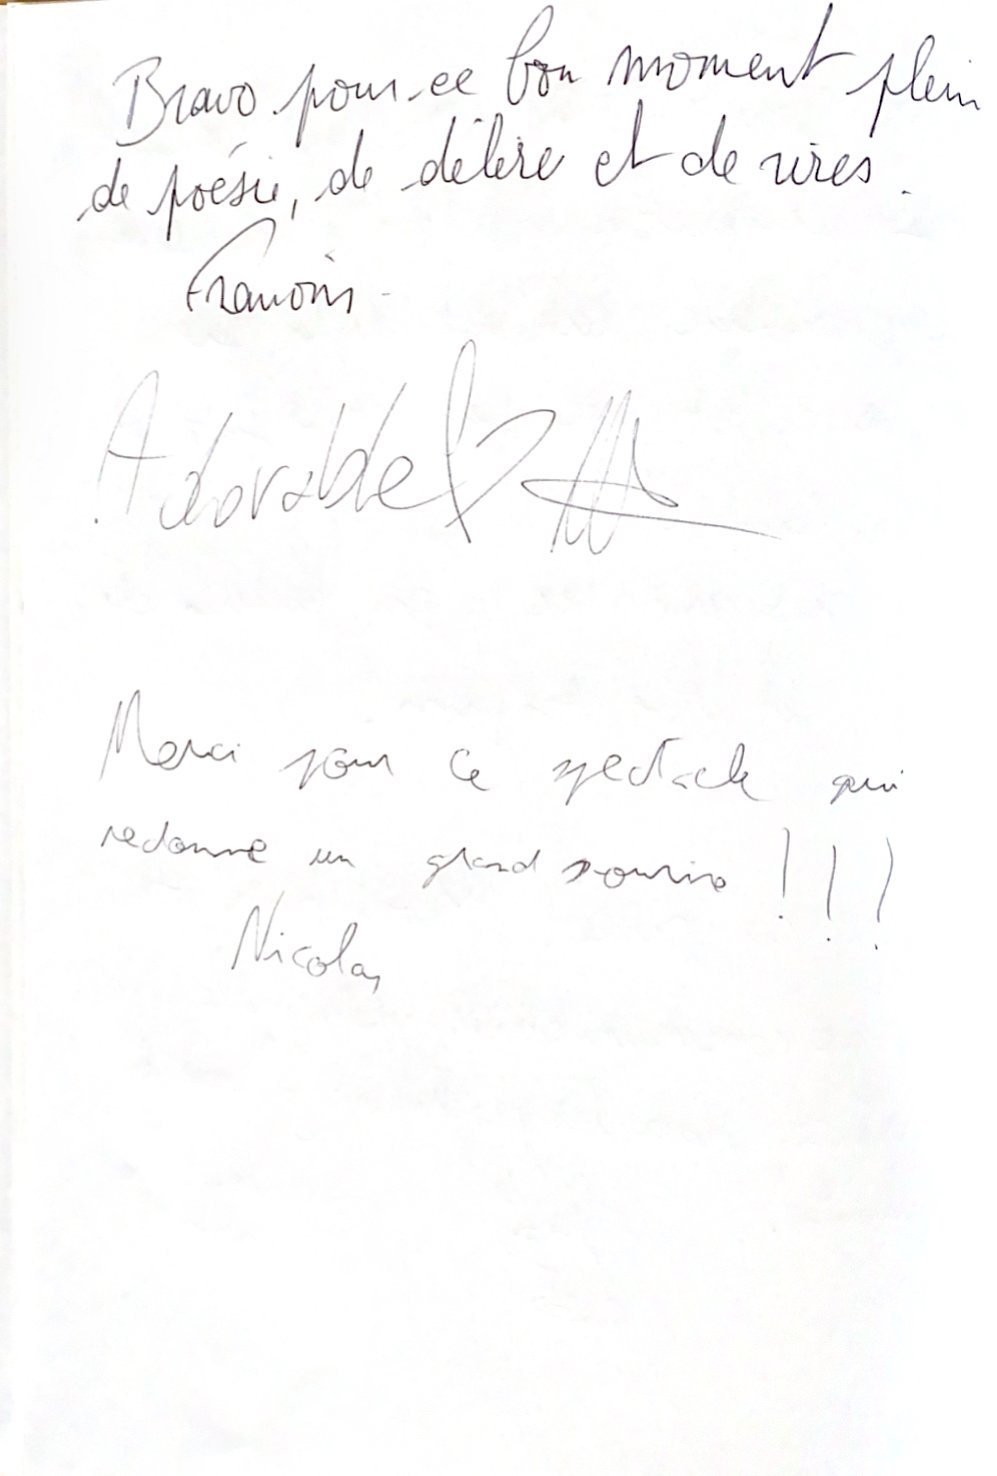 Bravo pour ce bon moment plein
de poésie, de délire et de rires.
François
Adorable
Merci pour ce spectacle qui
redonne un grand sourire !!!
Nicolas